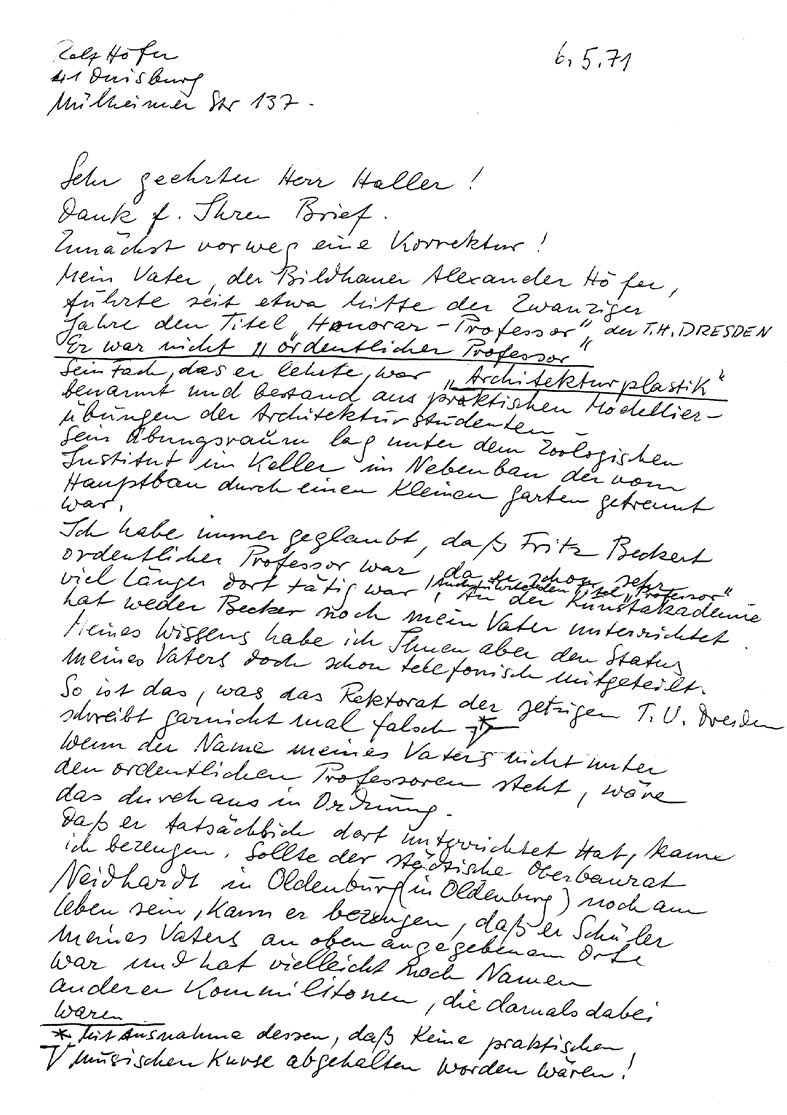 Rolf Höfer
41 Duisburg
Mülheimer Str 137.
6.5.71
Sehr geehrter Herr Haller!
Dank f. Ihren Brief.
Zunächst vorweg eine Korrektur!
Mein Vater, der Bildhauer Alexander Höfer,
führte seit etwa Mitte der Zwanziger
Jahre den Titel „Honorar-Professor" der T.H. DRESDEN
Er war nicht „ordentlicher Professor"
Sein Fach, das er lehrte, war „Architekturplastik"
benannt und bestand aus praktischen Modellier-
übungen der Architekturstudenten
Sein Übungsraum lag unter dem Zoologischen
Institut im Keller im Nebenbau der vom
Hauptbau durch einen kleinen Garten getrennt
war.
Ich habe immer geglaubt, daß Fritz Beckert
ordentlicher Professor war, da er schon sehr
viel länger dort tätig war, Titel „Professor"
An der Kunstakademie
hat weder Becker noch mein Vater unterrichtet.
Meines Wissens habe ich Ihnen aber den Status
meines Vaters doch schon telefonisch mitgeteilt.
So ist das, was das Rektorat der jetzigen T.U. Dresden
schreibt garnicht mal falsch *
Wenn der Name meines Vaters nicht unter
den ordentlichen Professoren steht, wäre
das durchaus in Ordnung.
Daß er tatsächlich dort unterrichtet hat, kann
ich bezeugen. Sollte der städtische Oberbaurat
Neidhardt in Oldenburg (in Oldenburg) noch am
Leben sein, kann er bezeugen, daß er Schüler
meines Vaters an oben angegebenem Orte
war und hat vielleicht noch Namen
anderer Kommilitonen, die damals dabei
waren
* Mit Ausnahme dessen, daß keine praktischen
musischen Kurse abgehalten worden wären!